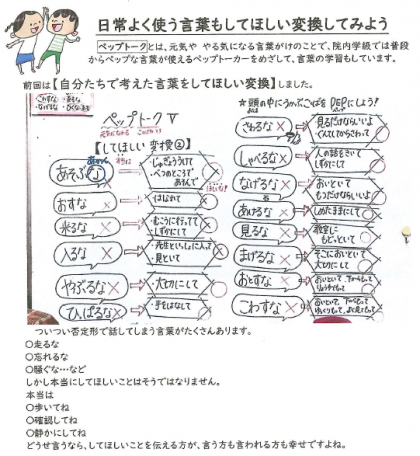 日常よく使う言葉もしてほしい変換してみよう
ペップトークとは、元気や やる気になる言葉がけのことで、院内学級では普段
からペップな言葉が使えるペップトーカーをめざして、言葉の学習もしています。
前回は【自分たちで考えた言葉をしてほしい変換】しました。
ペップトーク
【してほしい変換②】
あそぶな
じゅぎょうを
べつのところで
あそんで
おすな
はなれて
来るな
むこうに行ってて
しずかにして
入るな
先生といっしょに入って
見といて
やぶるな
大切にして
ひっぱるな
手をはなして
★頭の中にうかぶことばを PEPにしよう!
さわるな
見るだけならいいよ
しゃべるな
人の話をきいて
しずかにして
なげるな
おいといて
もつだけならいいよ
あけるな
しめたままにして
見るな
教室に
もどっといて
まげるな
そこにおいといて
大切にして
おとすな
こわすな
ついつい否定形で話してしまう言葉がたくさんあります。
○走るな
○忘れるな
○騒ぐな…など
しかし本当にしてほしいことはそうではなりません。
本当は
○歩いてね
○確認してね
○静かにしてね
どうせ言うなら、してほしいことを伝える方が、言う方も言われる方も幸せですよね。